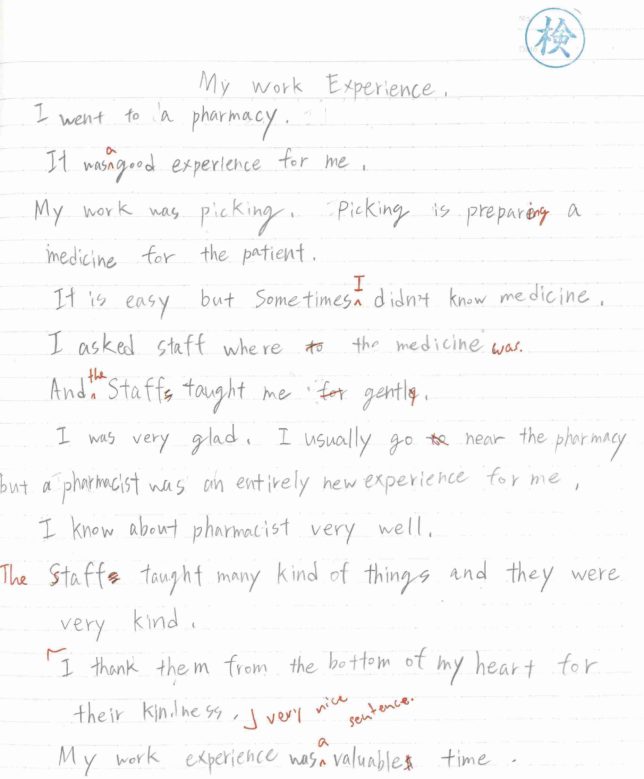 検
My work Experience.
I went to a pharmacy.
It was a good experience for me.
My work was picking. Picking is preparing a
medicine for the patient.
It is easy but Sometimes I didn't know medicine.
I asked staff where to the medicine was.
And the Staffs taught me for gently.
I was very glad. I usually go to near the pharmacy
but a pharmacist was an entirely new experience for me.
I know about pharmacist very well.
The Staffs taught many kind of things and they were
very kind.
I thank them from the bottom of my heart for
their kindness. very nice sentence.
My work experience was a valuable time.